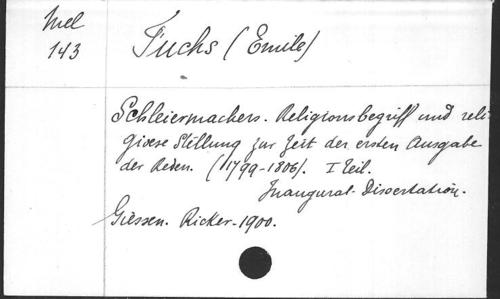 Mel
143
Fuchs (Emile)
Schleiermachers. Religionsbegriff und reli
giöse Stellung zur Zeit der ersten Ausgabe
der Reden. (1799-1806). I Teil.
Inaugural-Dissertation.
Giessen. Ricker-1900.